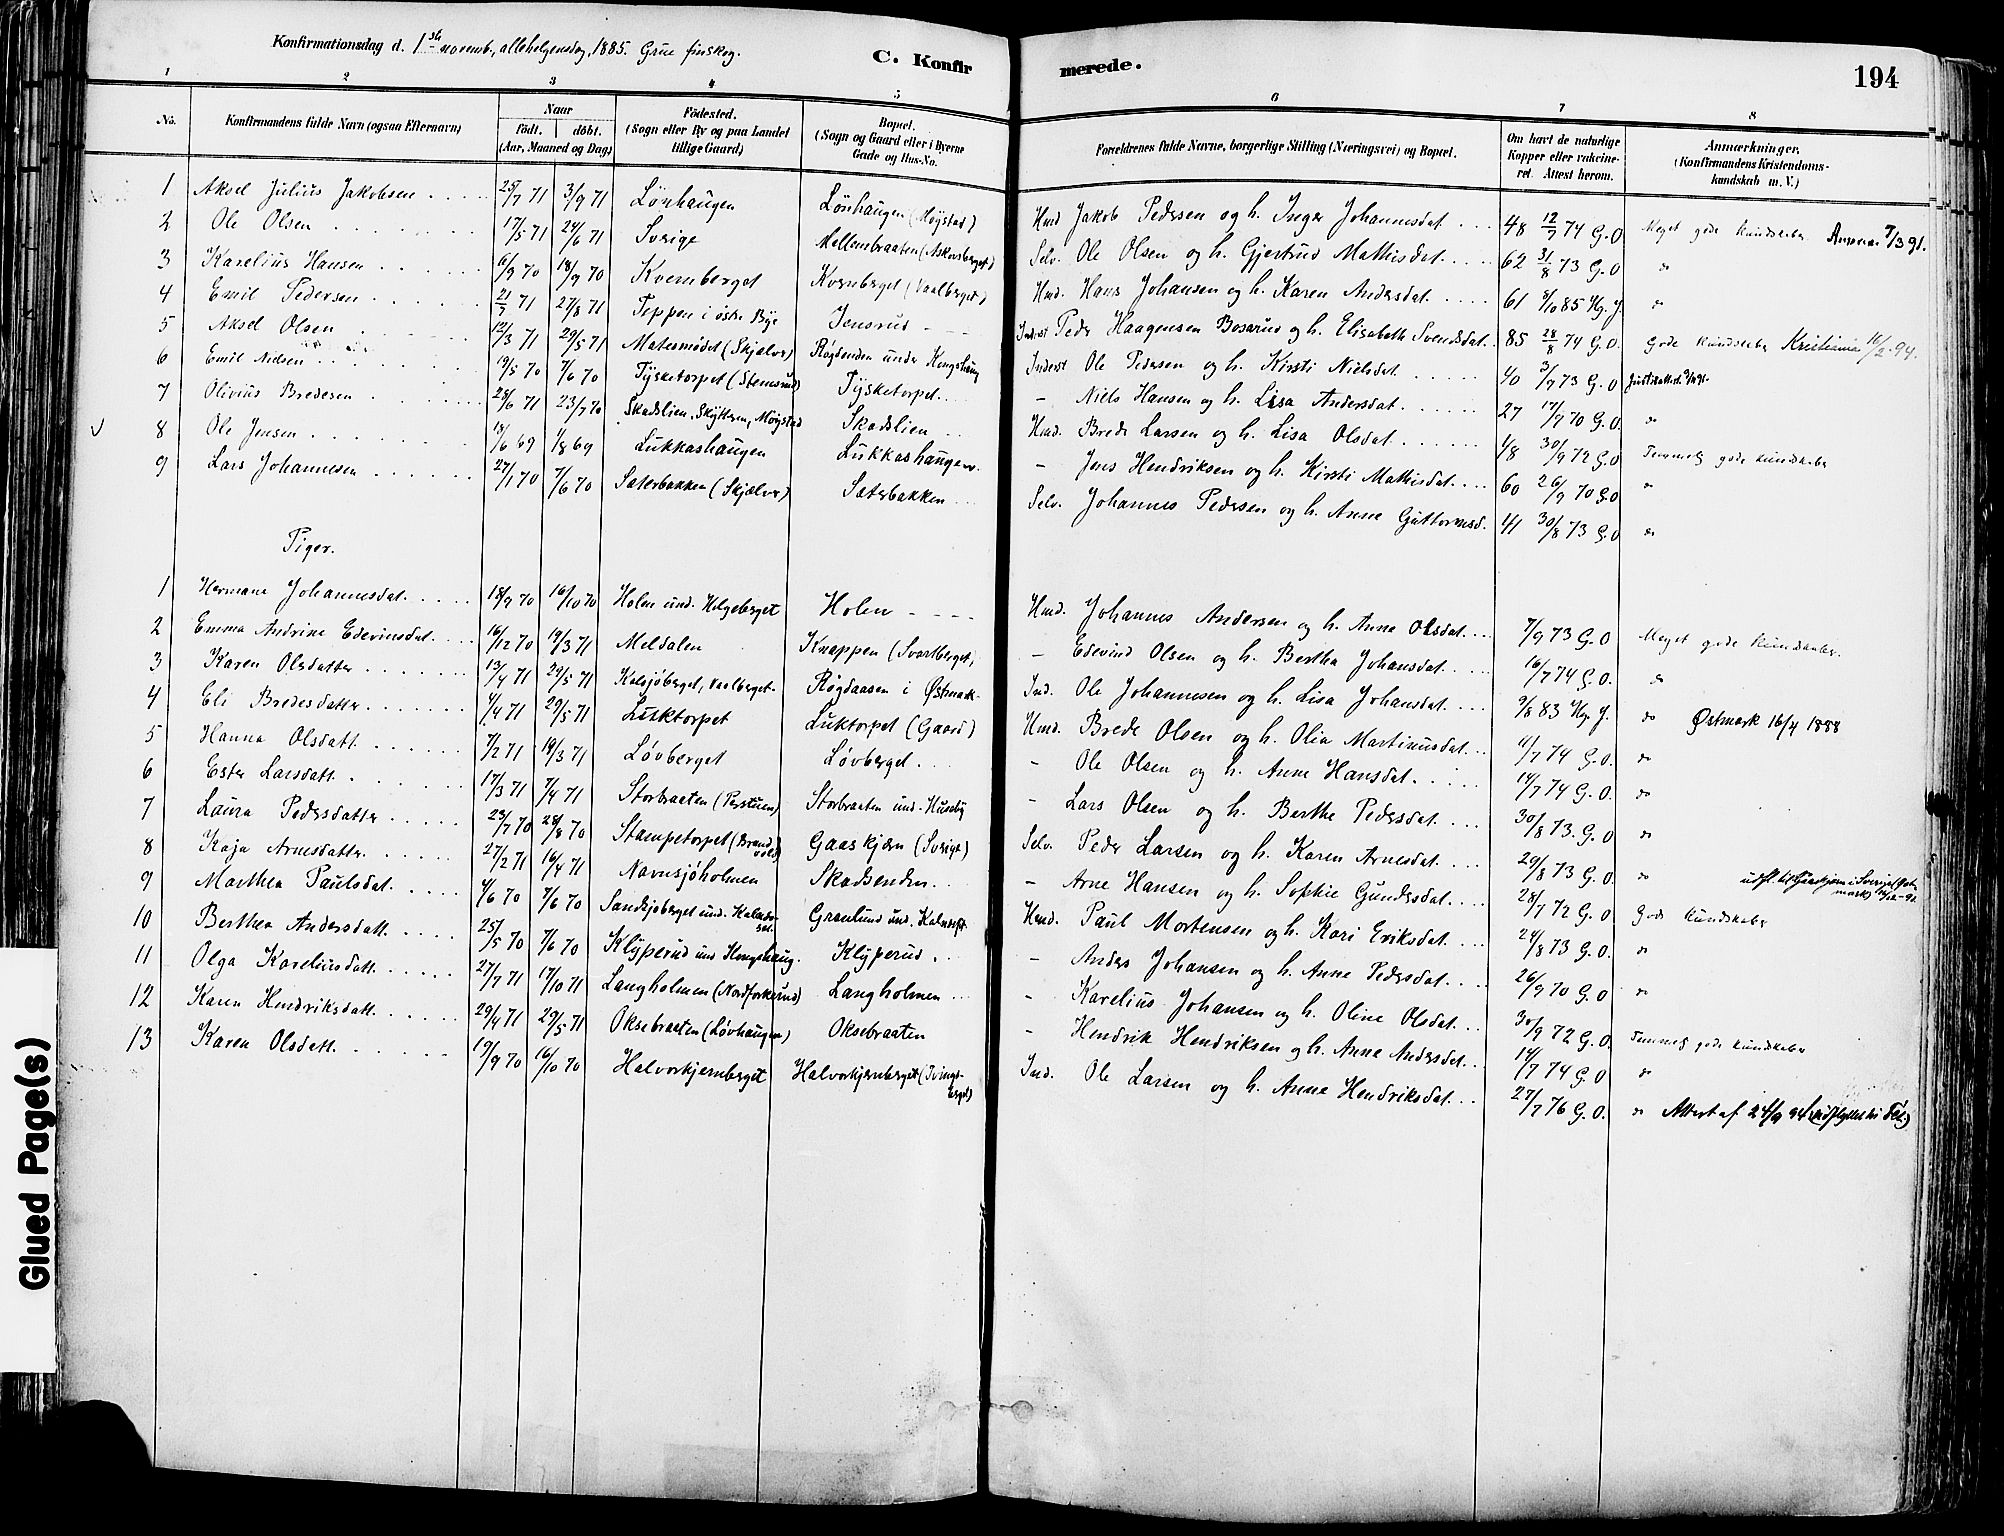 Konfirmationsdag d. 1ste novemb., allehelgensdag, 1885. Grue finskog.
C. Konfirmerede.
194
1 2 3 4 5 6 7 8
No. | Konfirmandens fulde Navn (ogsaa Efternavn) | Naar født. døbt. (Aar, Maaned og Dag) | Födested. (Sogn eller By og paa Landet tillige Gaard) | Bopæl. (Sogn og Gaard eller i Byerne Gade og Hus-No. | Forældrenes fulde Navne, borgerlige Stilling (Næringsvei) og Bopæl. | Om havt de naturlige Kopper eller vakcineret. Attest herom. | Anmærkninger. (Konfirmandens Kristendomskundskab m. V.)
1 Aksel Julius Jakobsen 25/7 71 3/9 71 Lönhaugen Lönhaugen (Møystad) Hmd Jakob Pedersen og h. Inger Johannesdat. 48 12/7 74 G.O Meget gode kundskaber 7/3 91.
2 Ole Olsen 17/5 71 24/6 71 Sverige Mellembraaten (Askosberget) Selv. Ole Olsen og h. Gjertrud Mathisdat. 62 31/8 73 G.O "
3 Karelius Hansen 6/9 70 18/9 70 Kvernberget Kvernberget (Vaalberget) Hmd. Hans Johansen og h. Karen Andersdat. 61 8/10 85 Hg. J. "
4 Emil Pedersen 21/7 71 27/8 71 Teppen i østre Bye Jensrud Inderst Peder Haagensen Bosarud og h. Elisabeth Svendsdat. 85 28/8 74 G.O. Gode kundskaber Kristiania 16/2.94.
5 Aksel Olsen 12/3 71 29/5 71 Matesmødet (Skjælver) Røgdenden under Kongshaug Inderst Ole Pedersen og h. Kirsti Nielsdat. 40 3/7 73 G.O
6 Emil Nielsen 19/5 70 7/6 70 Tysketorpet (Stemsrud) Tysketorpet - Niels Hansen og h. Lisa Andersdat. 27 17/7 70 G.O. "
7 Olivius Bredesen 28/6 71 23/7 70 Skadslien, Skytteren, Møystad Skadslien Hmd. Brede Larsen og h. Lisa Olsdat. 48 30/9 72 G.O Temmelig gode kundskaber
8 Ole Jensen 13/6 69 1/8 69 Lukkashaugen Lukkashaugen. - Jens Hendriksen og h. Kirsti Mathisdat. 60 26/9 70 G.O "
9 Lars Johannesen 27/1 70 7/6 70 Sæterbakken (Skjælver) Sæterbakken Selv. Johannes Pedersen og h. Anne Guttormsd. 41 30/8 73 G.O "
Piger.
1 Hermane Johannesdat. 18/9 70 16/10 70 Holen und. Helgeberget Holen Hmd. Johannes Andersen og h. Anne Olsdat. 7/9 73 G.O Meget gode kundskaber.
2 Emma Andrine Edevinsdat. 16/12 70 19/3 71 Meldalen Knappen (Svartberget, - Edevind Olsen og h. Bertha Johansdat. 16/7 74 G.O. "
3 Karen Olsdatter 13/4 71 29/5 71 Kalsjøberget, Vaalberget. Røgdaasen i Østmark. Ind. Ole Johannesen og h. Lisa Johansdat. 9/8 83 Hg. J. " Østmark 16/4 1888
4 Eli Bredesdatter 4/4 71 29/5 71 Luktorpet Luktorpet (Gaard) Hmd. Brede Olsen og h. Olia Martinusdat. 4/7 74 G.O. "
5 Hanna Olsdatt. 7/2 71 19/3 71 Løvberget Løvberget. - Ole Olsen og h. Anne Hansdat. 14/7 74 G.O. "
6 Ester Larsdatt. 17/3 71 7/4 71 Storbraaten (Perstuen) Storbraaten und. Huseby - Lars Olsen og h. Berthe Pedersdat. 30/8 73. G.O "
7 Laura Pedersdatter 23/7 70 28/8 70 Stampetorpet (Brandvold) Gaaskjærn (Sverige) Selv. Peder Larsen og h. Karen Arnesdat. 29/8 73 G.O. " udfl. til Gaaskjærn i Sverige
8 Kaja Arnesdatter. 27/2 71 16/4 71 Navnsjøholmen Skadsenden. - Arne Hansen og h. Sophie Gundersdat. 28/7 72 G.O Gode kundskaber
9 Marthea Paulsdat. 4/6 70 7/6 70 Sandsjøberget und. Kalneset. Grønlund und. Kalneset. Hmd. Paul Mortensen og h. Kari Eriksdat. 24/8 73 G.O. "
10 Berthea Andersdatt. 25/5 70 7/6 70 Klyperud und Hengshaug. Klyperud. - Anders Johansen og h. Anne Pedersdat. 26/9 70 G.O "
11 Olga Kareliusdatt. 27/7 71 17/10 71 Langholmen (Nordforkerud) Langholmen - Karelius Johansen og h. Oline Olsdat. 30/9 72 G.O. Temmelig gode kundskaber
12 Karen Hendriksdatt. 29/4 71 29/5 71 Oksebraaten (Løvhaugen) Oksebraaten - Hendrik Hendriksen og h. Anne Andersdat. 14/7 74 G.O "
13 Karen Olsdatt. 19/9 70 16/10 70 Halvorkjernberget Halvorkjernberget Ind. Ole Larsen og h. Anne Hendriksdat. 27/7 76 G.O. " Attest af 24/9 94
Glued Page(s)